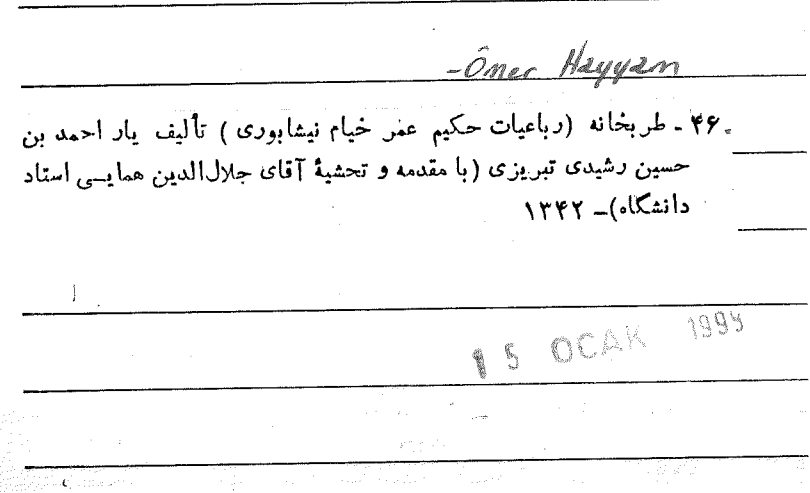 -Ömer Hayyam
۴۶ ـ طربخانه (رباعیات حکیم عمر خیام نیشابوری) تألیف یار احمد بن
حسین رشیدی تبریزی (با مقدمه و تحشیهٔ آقای جلال‌الدین همایی استاد
دانشگاه) ـ ۱۳۴۲
15 OCAK 1994